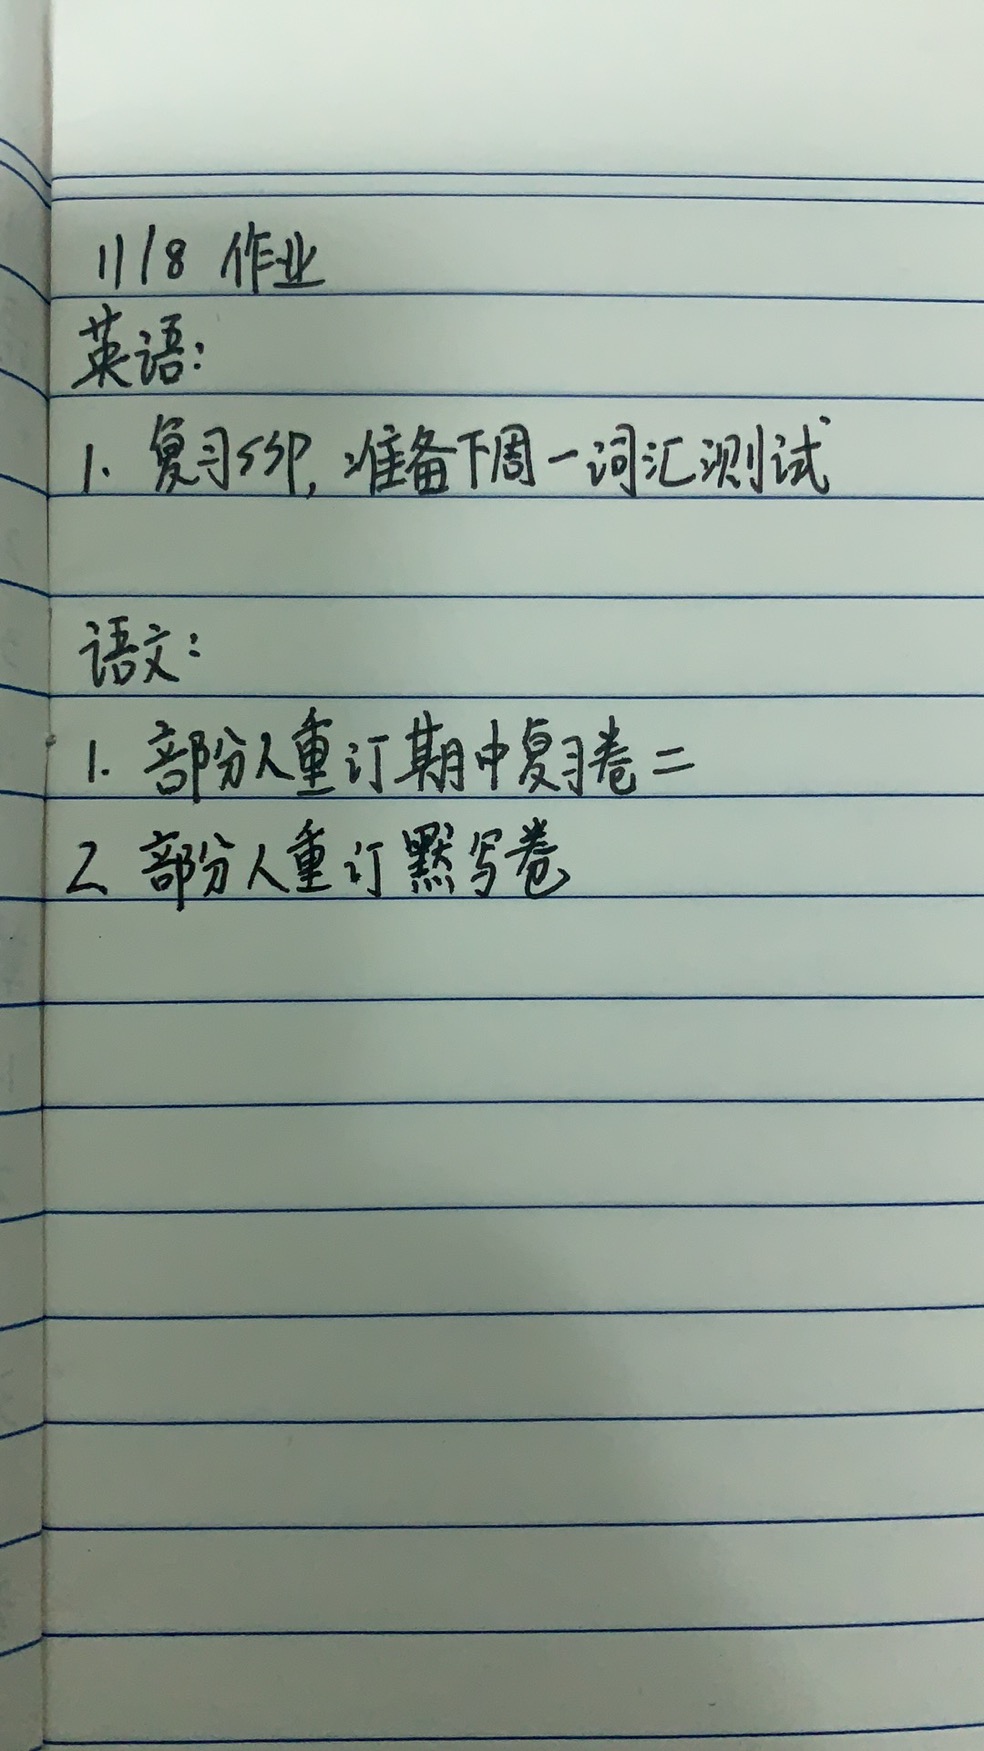 11/8 作业
英语:
1. 复习SSP, 准备下周一词汇测试
语文:
1. 部份人重订期中复习卷二
2. 部份人重订默写卷